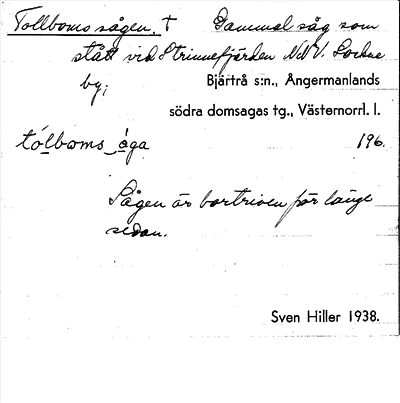 Tollboms sågen. † Gammal såg som
stått vid Strinnefjärden NNV. Lockne
by;
Bjärtrå s:n., Ångermanlands
södra domsagas tg., Västernorrl. l.
tólboms_ága 196.
Sågen är bortriven för länge
sedan.
Sven Hiller 1938.